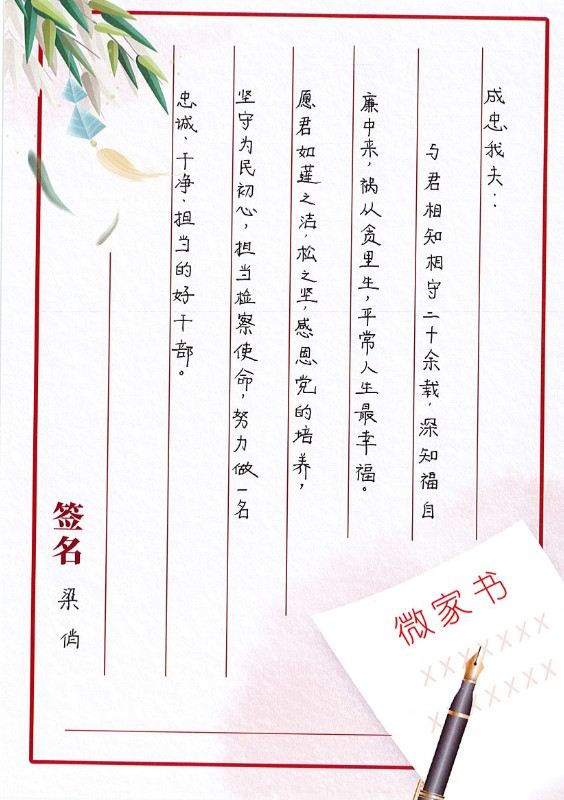 成忠我夫：
与君相知相守二十余载，深知福自
廉中来，祸从贪里生，平常人生最幸福。
愿君如莲之洁，松之坚，感恩党的培养，
坚守为民初心，担当检察使命，努力做一名
忠诚、干净、担当的好干部。
签名
梁俏
微家书
XXXXXXX
XXXXXXX